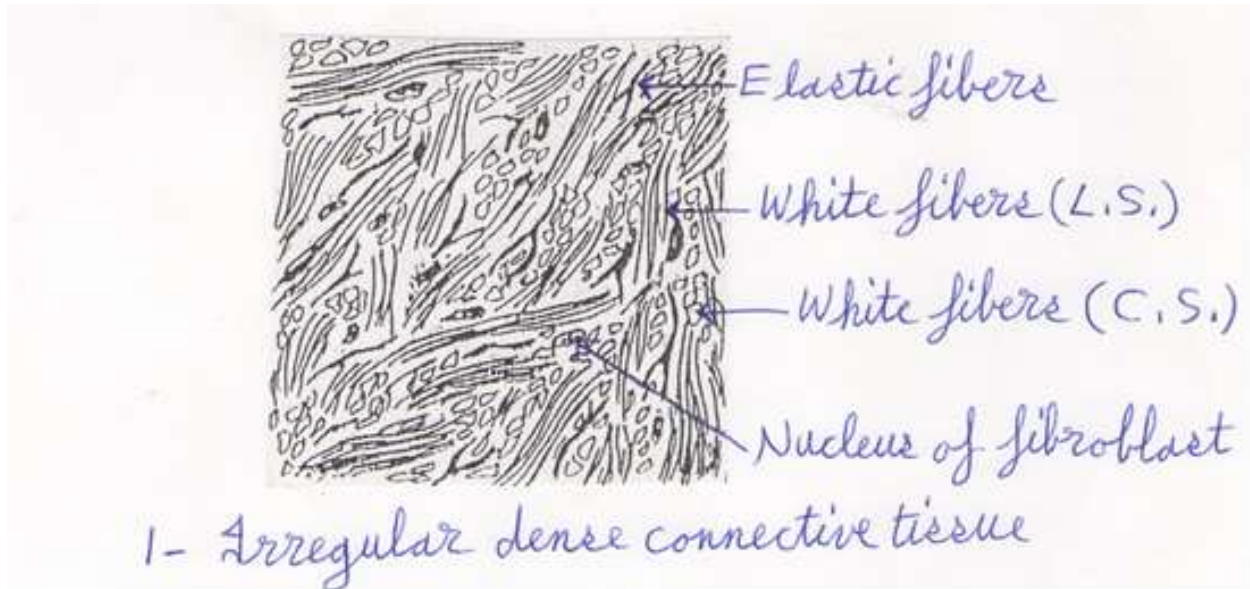 Elastic fibers
White fibers (L.S.)
White fibers (C.S.)
Nucleus of fibroblast
1- Irregular dense connective tissue